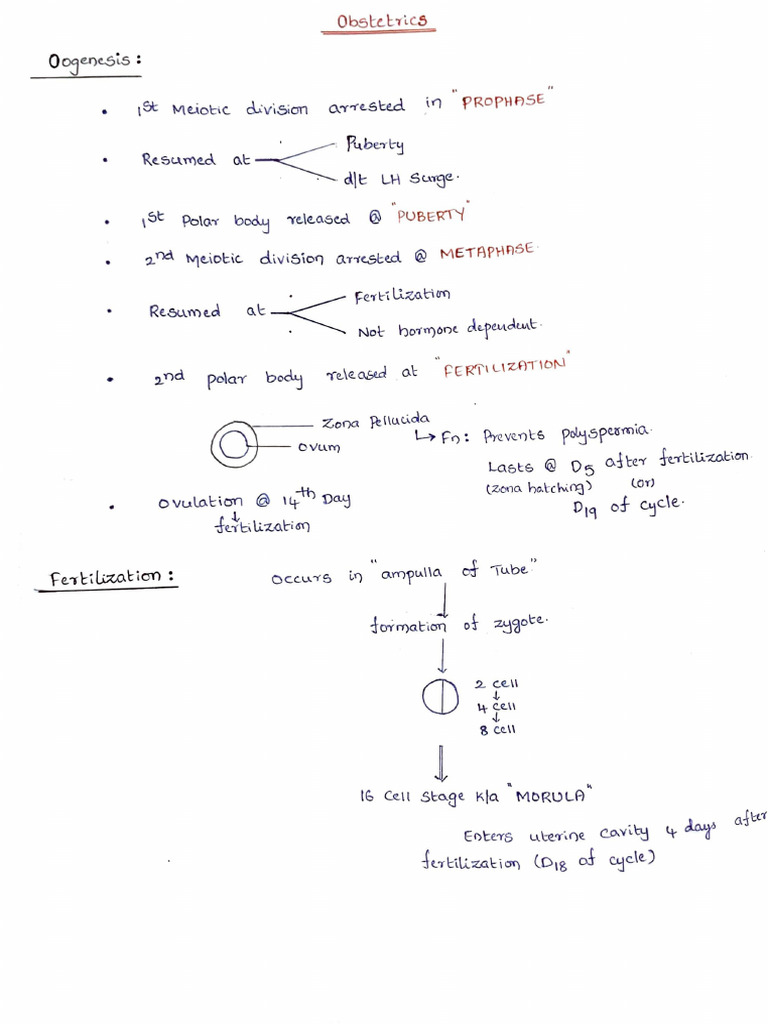 Obstetrics
Oogenesis:
• 1st Meiotic division arrested in "PROPHASE"
• Resumed at
Puberty
d/t LH Surge.
• 1st Polar body released @ "PUBERTY"
• 2nd Meiotic division arrested @ METAPHASE.
• Resumed at
Fertilization
Not hormone dependent.
• 2nd polar body released at "FERTILIZATION"
Zona Pellucida
Ovum
↳ Fn: Prevents polyspermia.
Lasts @ D5 after fertilization
(zona hatching) (or)
D19 of cycle.
• Ovulation @ 14th Day
↓
fertilization
Fertilization: Occurs in "ampulla of Tube"
↓
formation of zygote.
↓
2 cell
↓
4 cell
↓
8 cell
⇓
16 Cell Stage k/a "MORULA"
Enters uterine cavity 4 days after
fertilization (D18 of cycle)